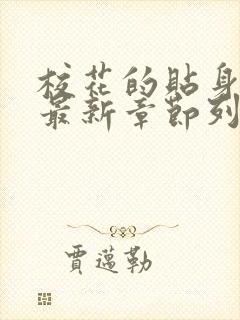 校花的貼身
最新章節列
賈邁勒